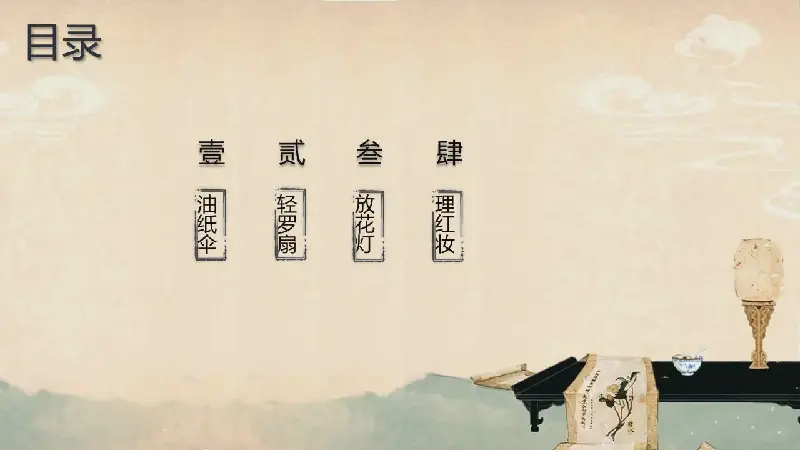 目录
壹
油纸伞
贰
轻罗扇
叁
放花灯
肆
理红妆